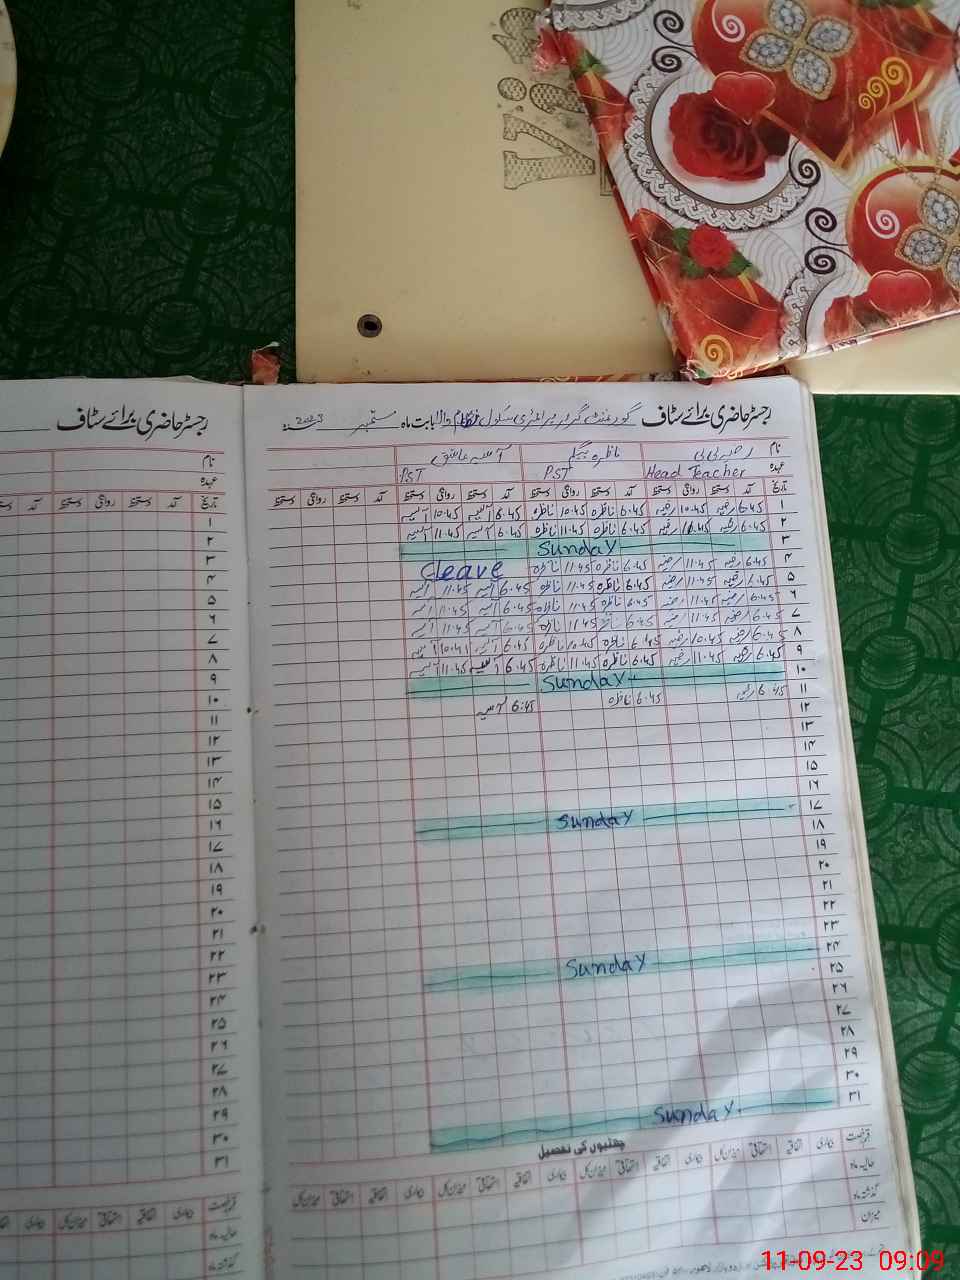 رجسٹر حاضری برائے سٹاف گورنمنٹ گرلز پرائمری سکول بابت ماہ ستمبر 2023
نام رضیہ بی بی ناظرہ بیگم آسیہ عاشق
عہدہ Head Teacher PST PST
تاریخ آمد دستخط روانگی دستخط آمد دستخط روانگی دستخط آمد دستخط روانگی دستخط آمد دستخط روانگی دستخط
۱ 6.45 رضیہ 10.45 رضیہ 6.45 ناظرہ 10.45 ناظرہ 6.45 آسیہ 10.45 آسیہ
۲ 6.45 رضیہ 11.45 رضیہ 6.45 ناظرہ 11.45 ناظرہ 6.45 آسیہ 11.45 آسیہ
۳ Sunday
۴ 6.45 رضیہ 11.45 رضیہ 6.45 ناظرہ 11.45 ناظرہ Cleave
۵ 6.45 رضیہ 11.45 رضیہ 6.45 ناظرہ 11.45 ناظرہ 6.45 آسیہ 11.45 آسیہ
۶ 6.45 رضیہ 11.45 رضیہ 6.45 ناظرہ 11.45 ناظرہ 6.45 آسیہ 11.45 آسیہ
۷ 6.45 رضیہ 11.45 رضیہ 6.45 ناظرہ 11.45 ناظرہ 6.45 آسیہ 11.45 آسیہ
۸ 6.45 رضیہ 10.45 رضیہ 6.45 ناظرہ 10.45 ناظرہ 6.45 آسیہ 10.45 آسیہ
۹ 6.45 رضیہ 11.45 رضیہ 6.45 ناظرہ 11.45 ناظرہ 6.45 آسیہ 11.45 آسیہ
۱۰ Sunday
۱۱ 6.45 رضیہ 6.45 ناظرہ 6:45 آسیہ
۱۲
۱۳
۱۴
۱۵
۱۶
۱۷ Sunday
۱۸
۱۹
۲۰
۲۱
۲۲
۲۳
۲۴ Sunday
۲۵
۲۶
۲۷
۲۸
۲۹
۳۰
۳۱ Sunday
چھٹیوں کی تفصیل
قسم رخصت بیماری اتفاقیہ استحقاقی میزان کل بیماری اتفاقیہ استحقاقی میزان کل بیماری اتفاقیہ استحقاقی میزان کل بیماری اتفاقیہ استحقاقی میزان کل
حالیہ ماہ
گذشتہ ماہ
میزان
رجسٹر حاضری برائے سٹاف
نام
عہدہ
تاریخ آمد دستخط روانگی دستخط آمد دستخط
۱
۲
۳
۴
۵
۶
۷
۸
۹
۱۰
۱۱
۱۲
۱۳
۱۴
۱۵
۱۶
۱۷
۱۸
۱۹
۲۰
۲۱
۲۲
۲۳
۲۴
۲۵
۲۶
۲۷
۲۸
۲۹
۳۰
۳۱
قسم رخصت بیماری اتفاقیہ استحقاقی میزان کل بیماری اتفاقیہ
حالیہ ماہ
گذشتہ
11-09-23 09:09